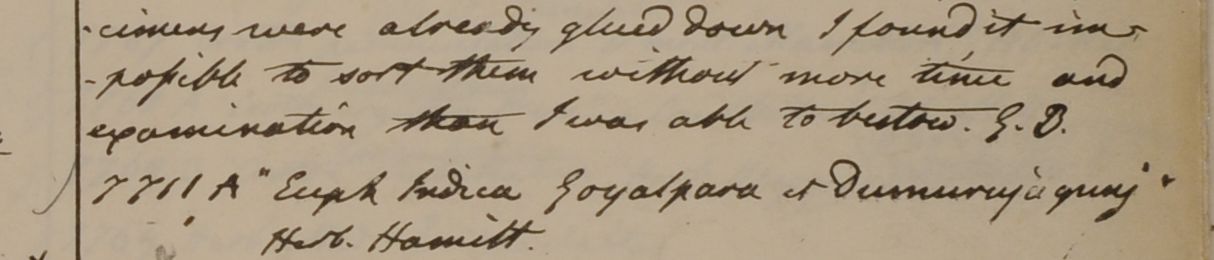 -cimens were already glued down I found it im-
-possible to sort them without more time and
examination than I was able to bestow. G. B.
7711 A "Euph Indica Goyalpara et Dumurujagunj"
Herb. Hamilt.